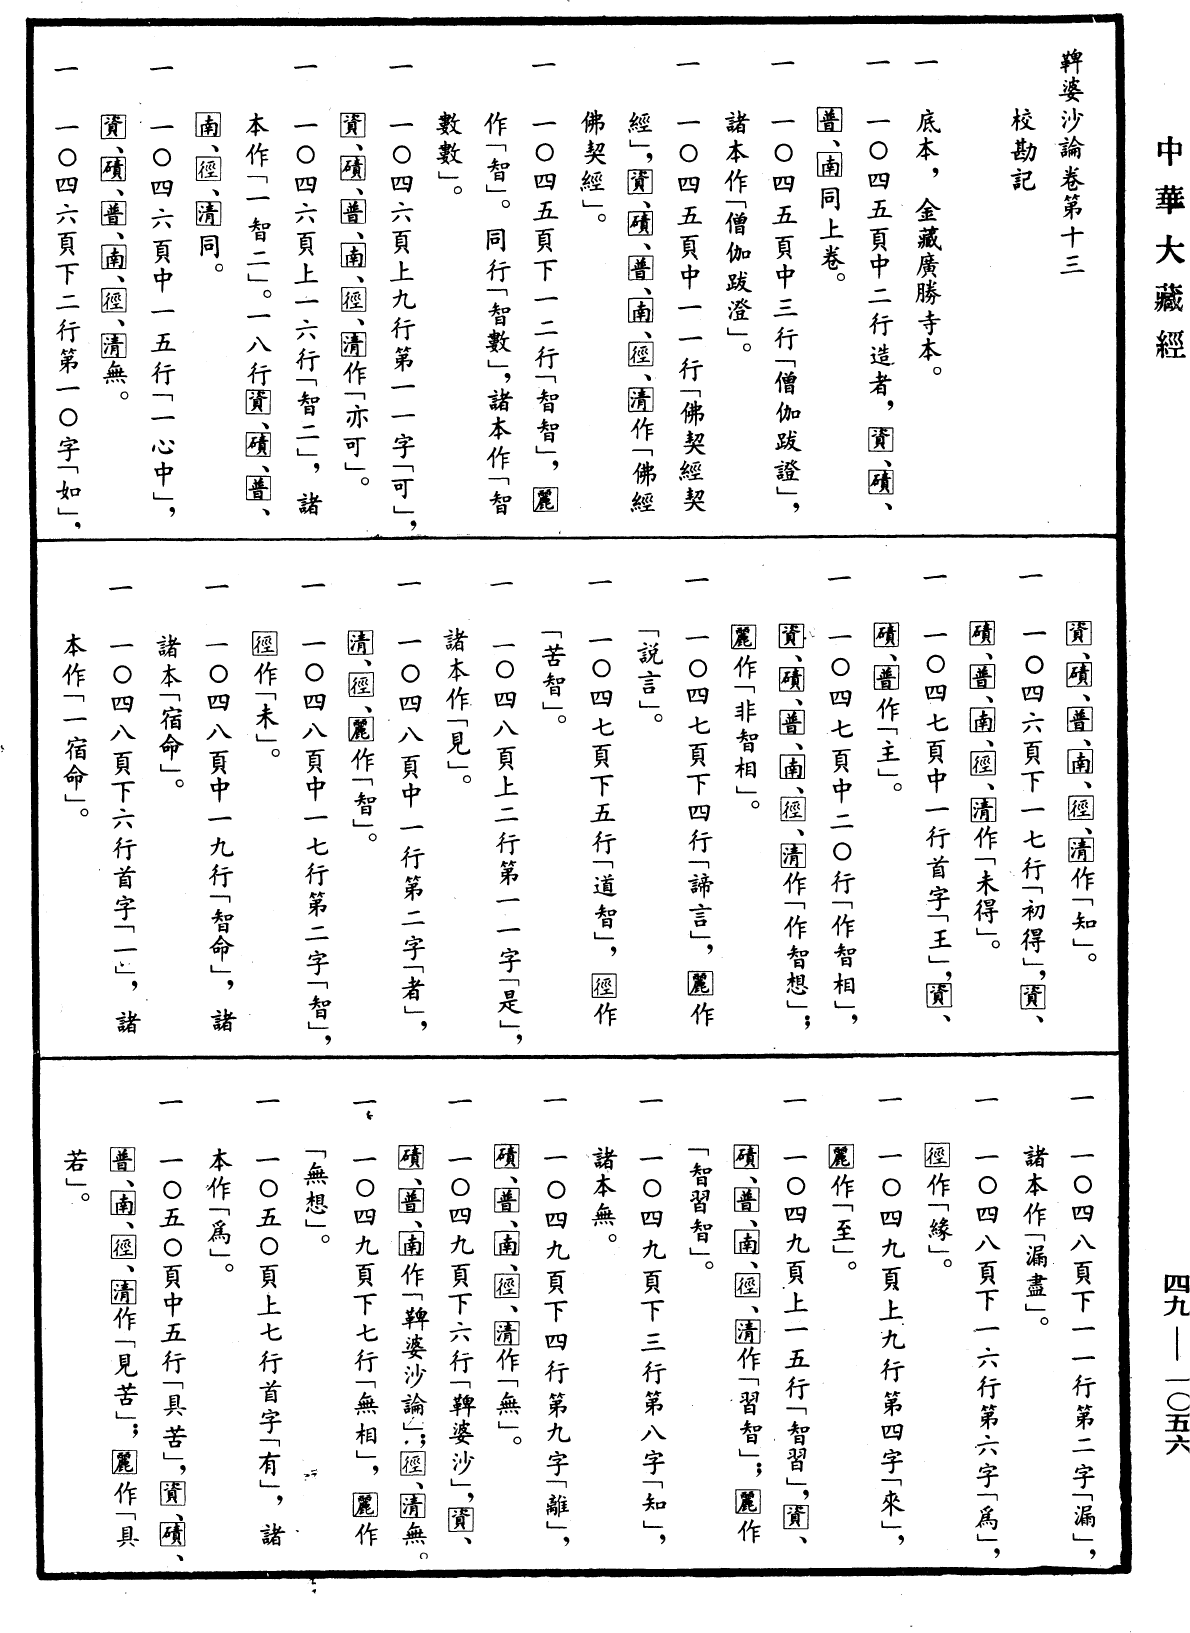 中華大藏經
鞞婆沙論卷第十三
校勘記
一　底本，金藏廣勝寺本。
一　一〇四五頁中二行造者，資、磧、
普、南同上卷。
一　一〇四五頁中三行「僧伽跋證」，
諸本作「僧伽跋澄」。
一　一〇四五頁中一一行「佛契經契
經」，資、磧、普、南、徑、清作「佛經
佛契經」。
一　一〇四五頁下一二行「智智」，麗
作「智」。同行「智數」，諸本作「智
數數」。
一　一〇四六頁上九行第一一字「可」，
資、磧、普、南、徑、清作「亦可」。
一　一〇四六頁上一六行「智二」，諸
本作「一智二」。一八行資、磧、普、
南、徑、清同。
一　一〇四六頁中一五行「一心中」，
資、磧、普、南、徑、清無。
一　一〇四六頁下二行第一〇字「如」，
資、磧、普、南、徑、清作「知」。
一　一〇四六頁下一七行「初得」，資、
磧、普、南、徑、清作「未得」。
一　一〇四七頁中一行首字「王」，資、
磧、普作「主」。
一　一〇四七頁中二〇行「作智相」，
資、磧、普、南、徑、清作「作智想」；
麗作「非智相」。
一　一〇四七頁下四行「諦言」，麗作
「說言」。
一　一〇四七頁下五行「道智」，徑作
「苦智」。
一　一〇四八頁上二行第一一字「是」，
諸本作「見」。
一　一〇四八頁中一行第二字「者」，
清、徑、麗作「智」。
一　一〇四八頁中一七行第二字「智」，
徑作「未」。
一　一〇四八頁中一九行「智命」，諸
諸本「宿命」。
一　一〇四八頁下六行首字「一」，諸
本作「一宿命」。
一　一〇四八頁下一一行第二字「漏」，
諸本作「漏盡」。
一　一〇四八頁下一六行第六字「爲」，
徑作「緣」。
一　一〇四九頁上九行第四字「來」，
麗作「至」。
一　一〇四九頁上一五行「智習」，資、
磧、普、南、徑、清作「習智」；麗作
「智習智」。
一　一〇四九頁下三行第八字「知」，
諸本無。
一　一〇四九頁下四行第九字「離」，
磧、普、南、徑、清作「無」。
一　一〇四九頁下六行「鞞婆沙」，資、
磧、普、南作「鞞婆沙論」；徑、清無。
一　一〇四九頁下七行「無相」，麗作
「無想」。
一　一〇五〇頁上七行首字「有」，諸
本作「爲」。
一　一〇五〇頁中五行「具苦」，資、磧、
普、南、徑、清作「見苦」；麗作「具
若」。
四九—一〇五六